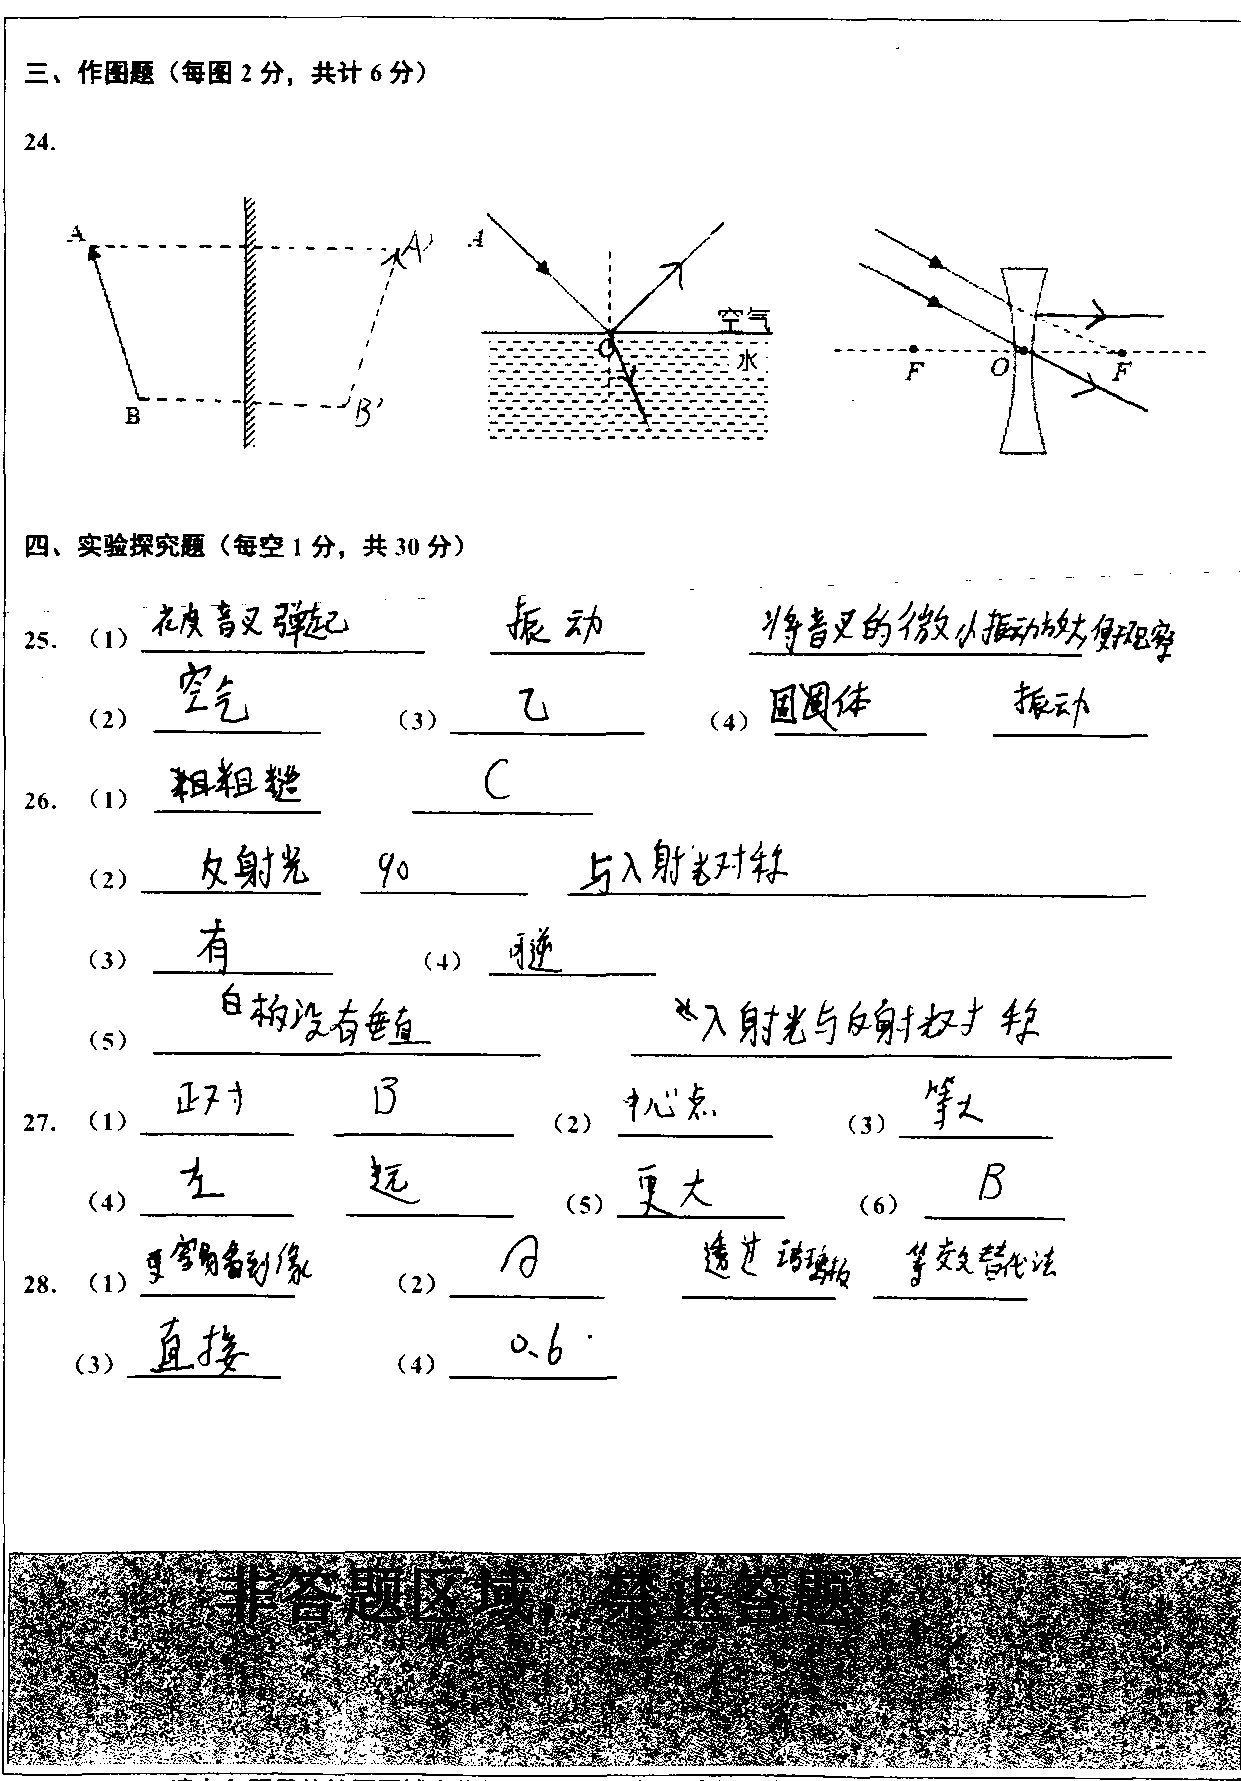 三、作图题（每图 2 分，共计 6 分）
24.
A A' B B'
A O 空气 水
F O F
四、实验探究题（每空 1 分，共 30 分）
25. （1） 音叉弹起 振动 将音叉的微小振动放大,便于观察
（2） 空气 （3） 乙 （4） 固体 振动
26. （1） 粗糙 C
（2） 反射光 90 与入射光对称
（3） 有 （4） 可逆
（5） 白板没有垂直 入射光与反射光对称
27. （1） 正对 B （2） 中心点 （3） 等大
（4） 左 远 （5） 更大 （6） B
28. （1） 更容易看到像 （2） A 透过玻璃板 等效替代法
（3） 直接 （4） 0.6
非答题区域，禁止答题